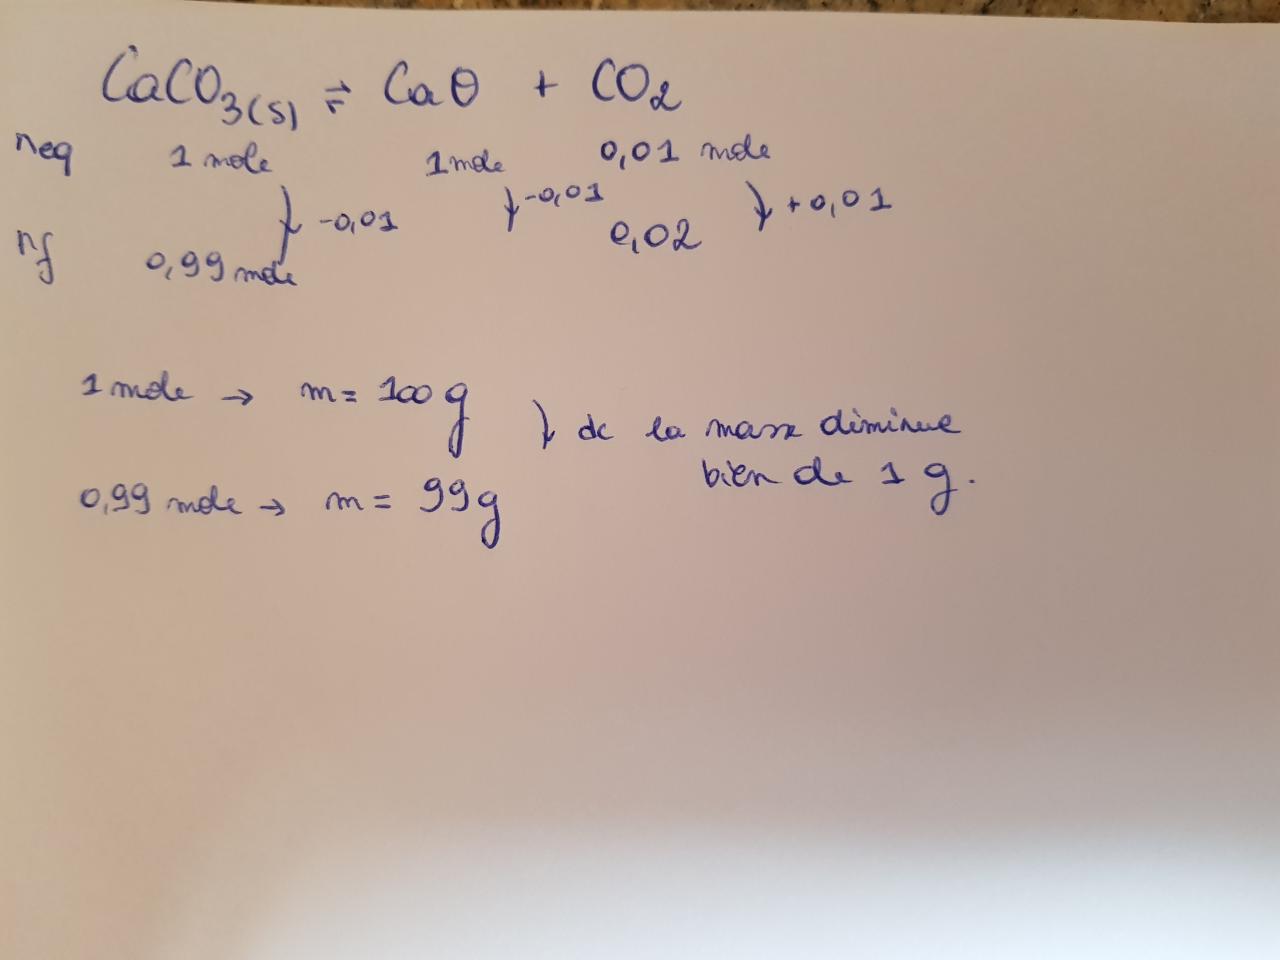 CaCO3(s) ⇌ CaO + CO2
neq 1 mole 1 mole 0,01 mole
↓ -0,01 ↓ -0,01 ↓ +0,01
nf 0,99 mole 0,02
1 mole → m = 100 g
↓ dc la masse diminue
bien de 1 g.
0,99 mole → m = 99 g